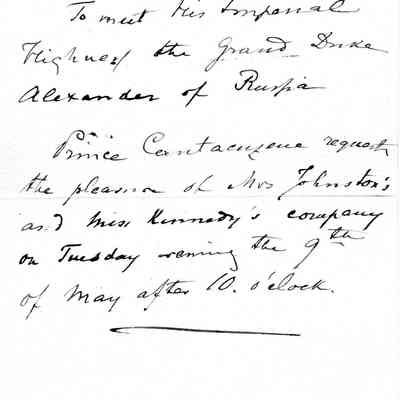 To meet His Imperial
Highness the Grand Duke
Alexander of Russia
Prince Cantacuzene request
the pleasure of Mrs Johnston's
and Miss Kennedy's company
on Tuesday evening the 9th
of May after 10. o'clock.